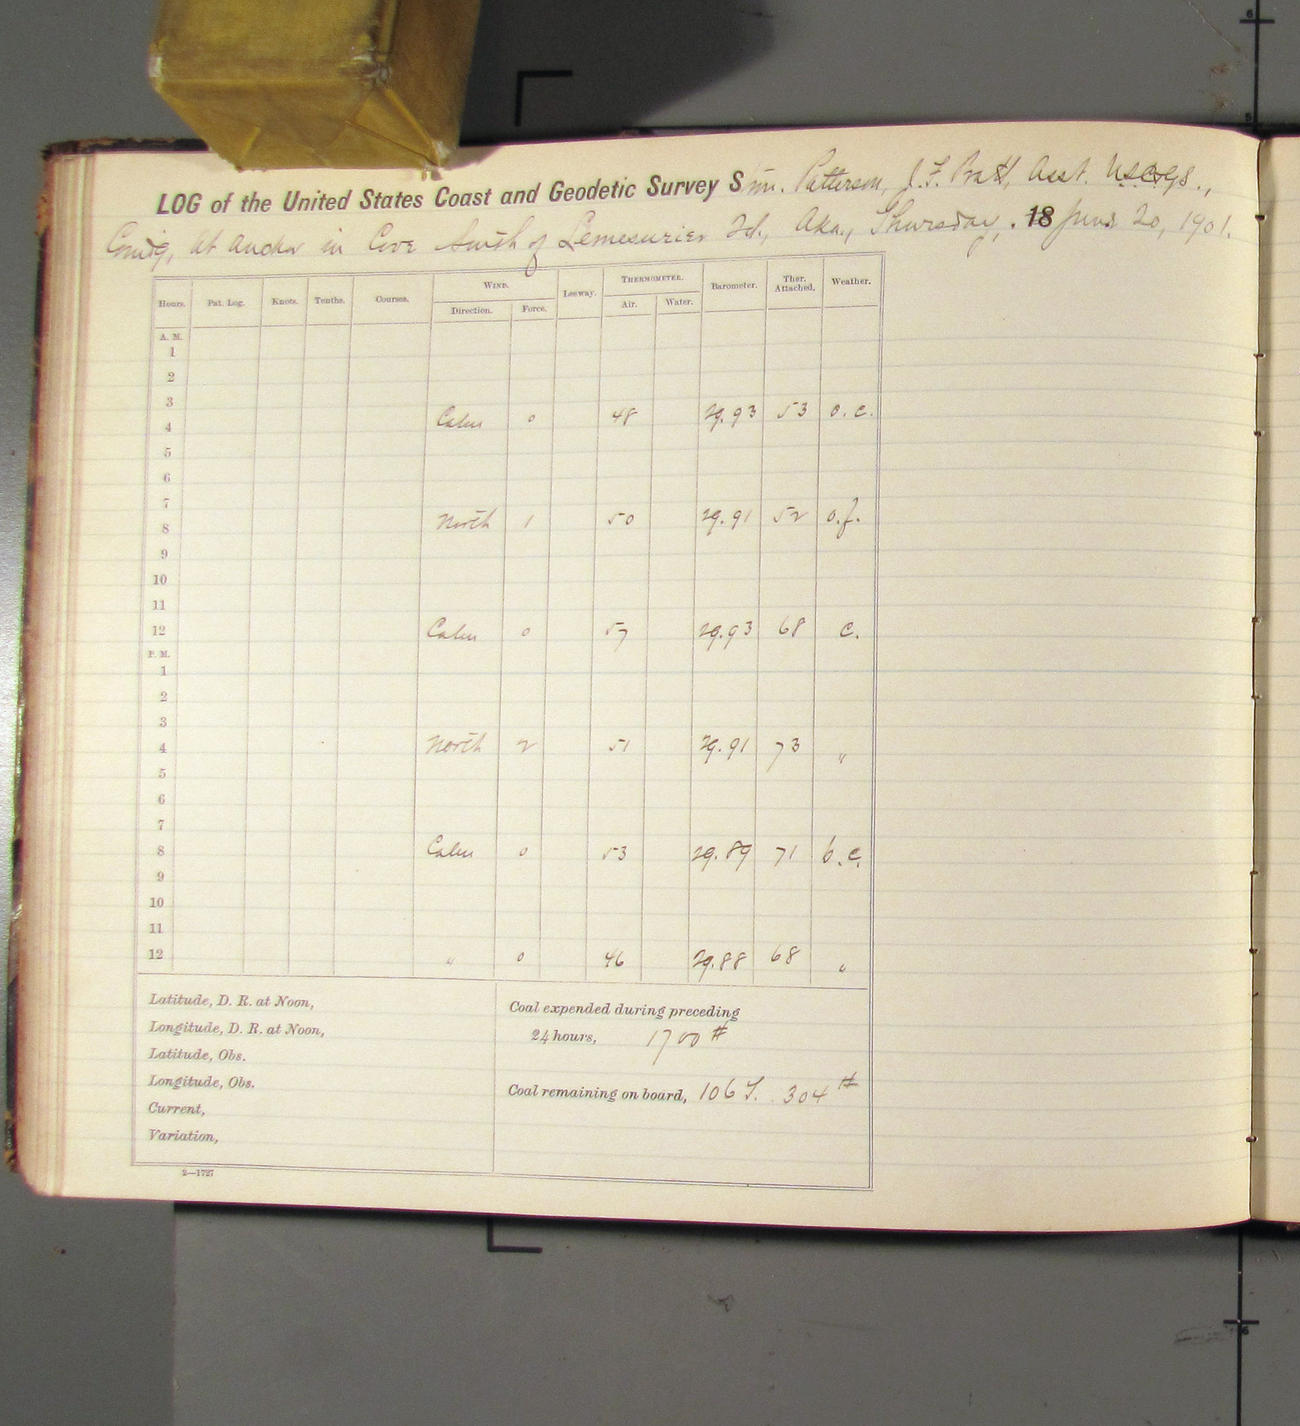 LOG of the United States Coast and Geodetic Survey Stmr. Patterson, J. F. Pratt, Asst. U.S.C.&G.S.,
Comd'g, At Anchor in Cove South of Lemesurier Id., Aka., Thursday, . 18 June 20, 1901.
Hours. Pat. Log. Knots. Tenths. Courses. WIND. Leeway. THERMOMETER. Barometer. Ther. Attached. Weather.
Direction. Force. Air. Water.
A. M.
1
2
3
4 Calm 0 48 29.93 53 o.c.
5
6
7
8 North 1 50 29.91 52 o.f.
9
10
11
12 Calm 0 57 29.93 68 c.
P. M.
1
2
3
4 North 2 51 29.91 73 "
5
6
7
8 Calm 0 53 29.89 71 b.c.
9
10
11
12 " 0 46 29.88 68 "
Latitude, D. R. at Noon,
Longitude, D. R. at Noon,
Latitude, Obs.
Longitude, Obs.
Current,
Variation,
Coal expended during preceding
24 hours, 1700 #
Coal remaining on board, 106 T. 304 #
2—1727